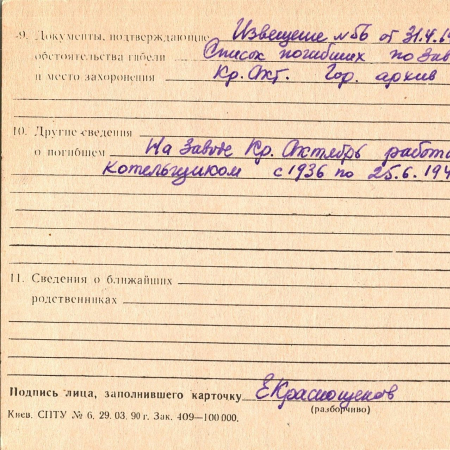 9. Документы, подтверждающие Извещение №56 от 31.4.
обстоятельства гибели Список погибших по зав
и место захоронения Кр. Окт. Гор. архив
10. Другие сведения
о погибшем На Заводе Кр. Октябрь работа
котельщиком с 1936 по 25.6.194
11. Сведения о ближайших
родственниках
Подпись лица, заполнившего карточку ЕКраснощеков
(разборчиво)
Киев. СПТУ № 6. 29. 03. 90 г. Зак. 409—100 000.